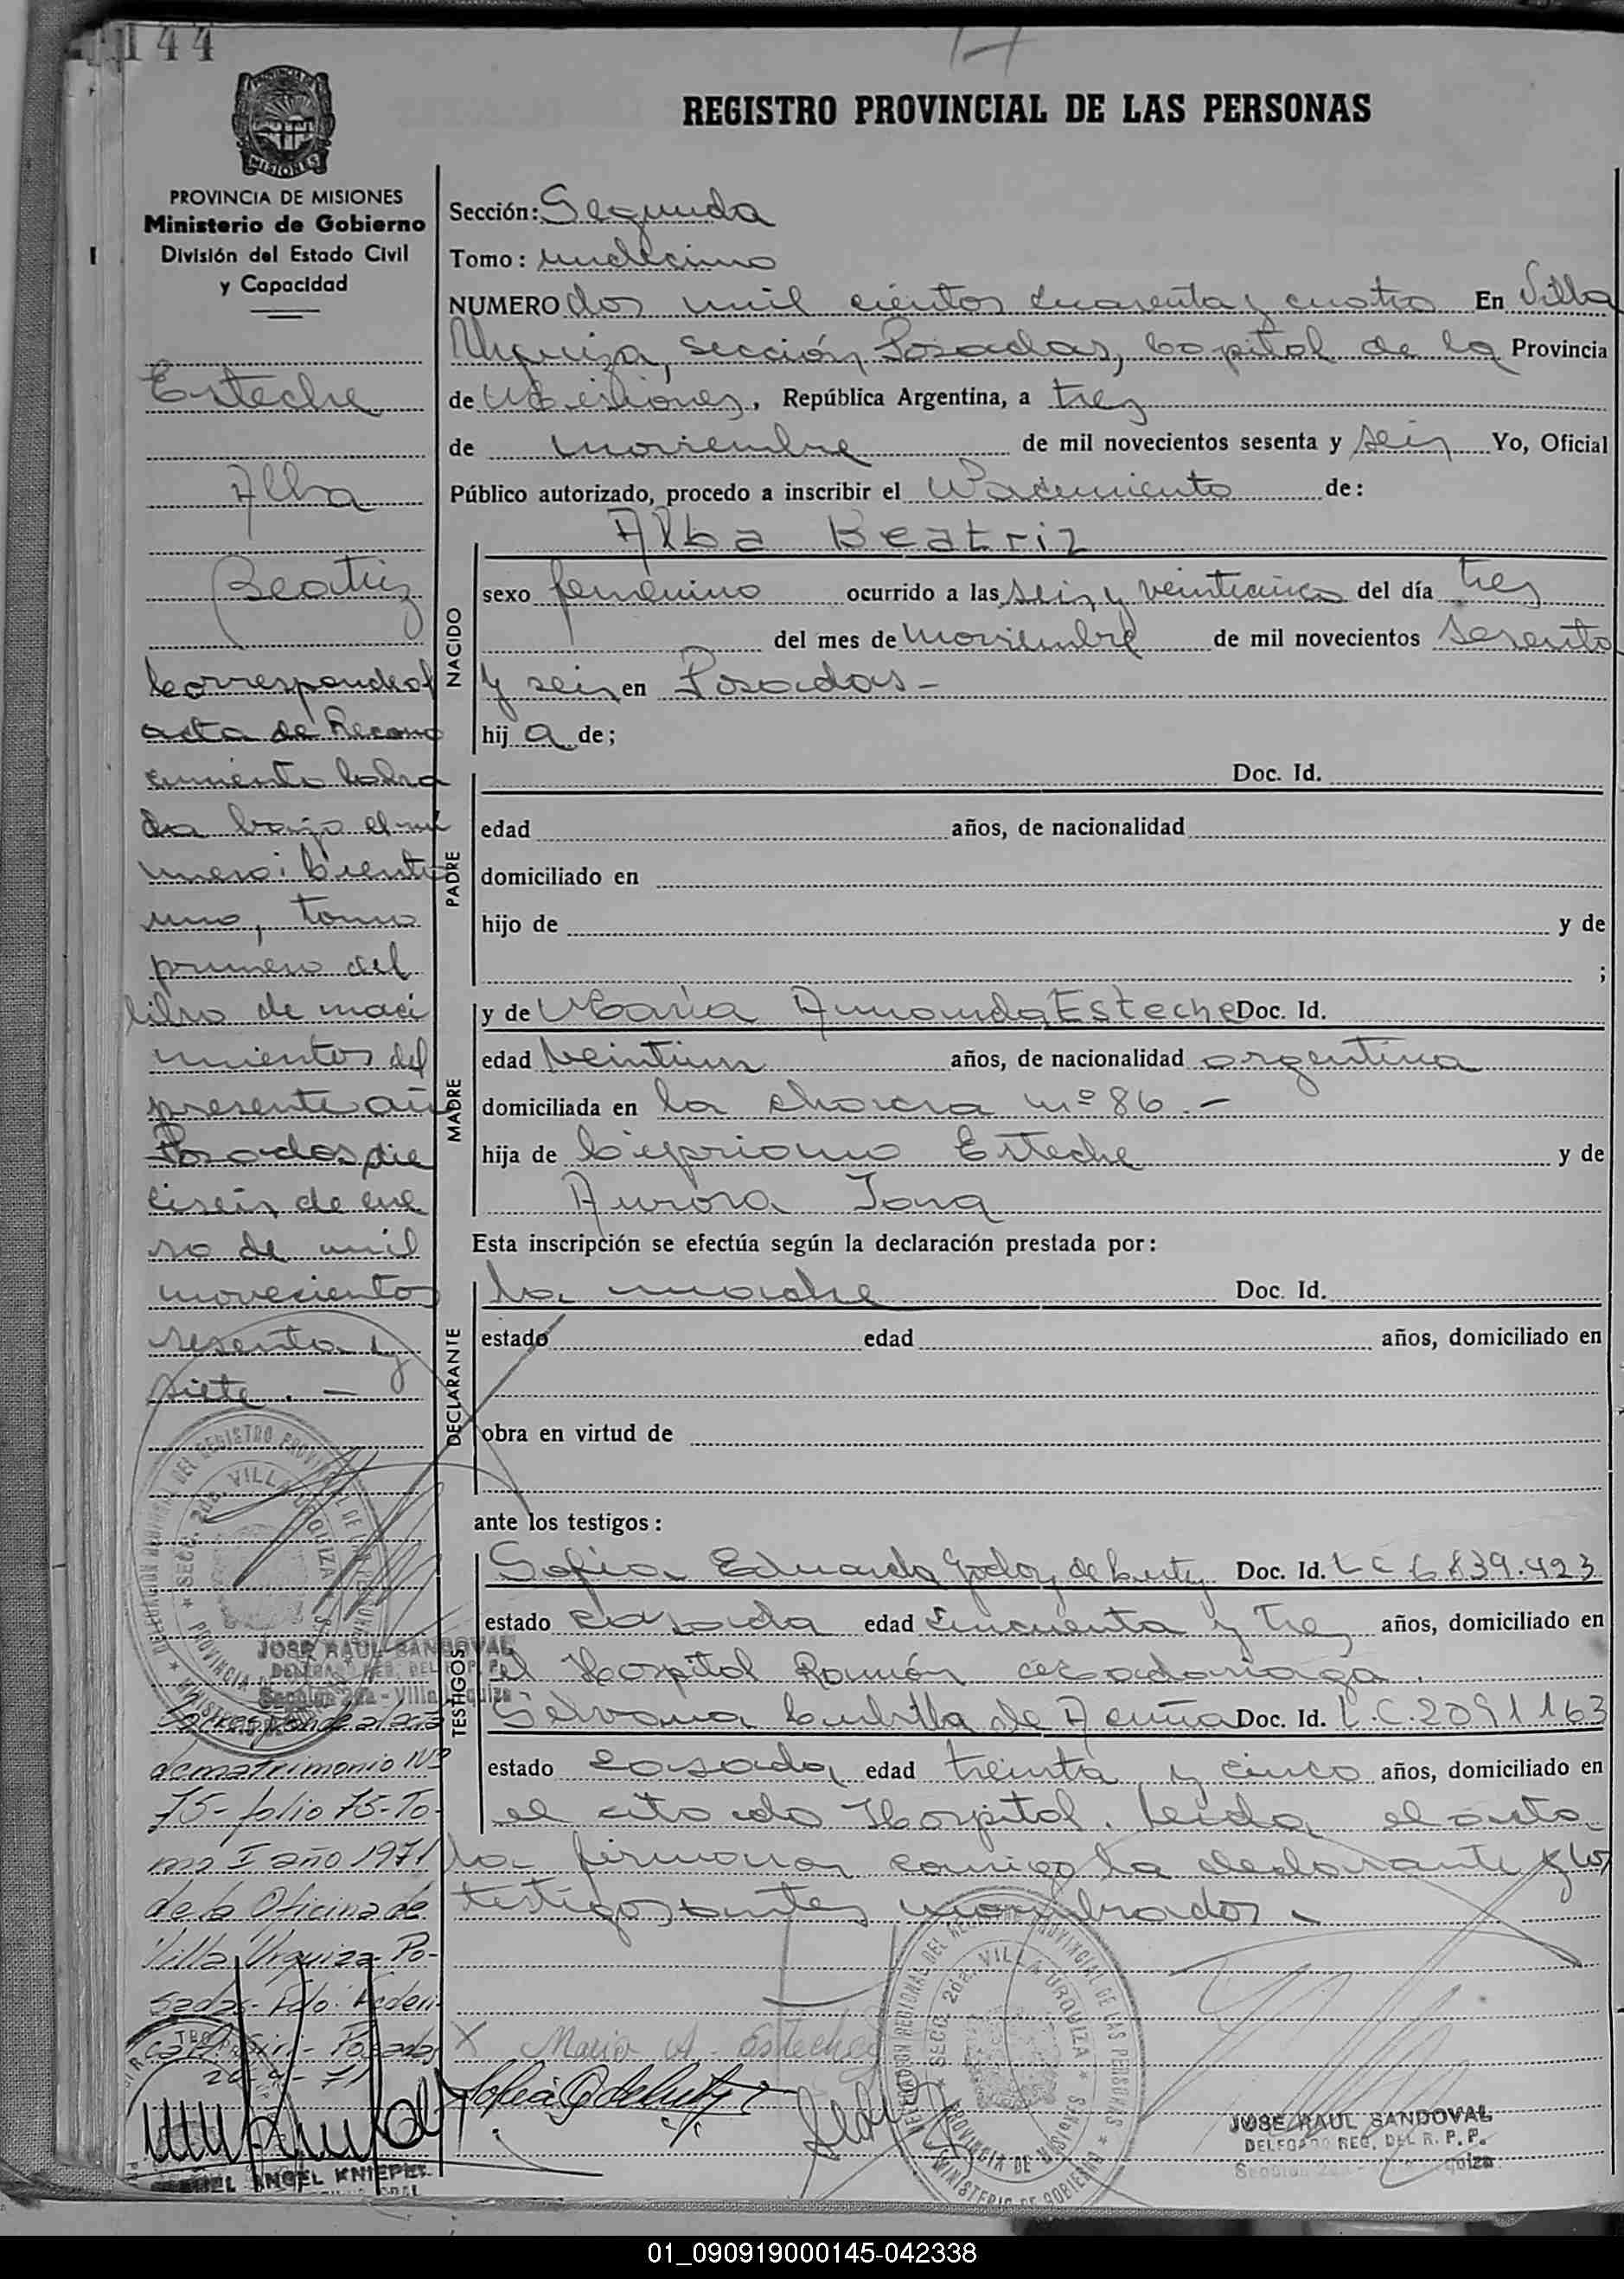 144
REGISTRO PROVINCIAL DE LAS PERSONAS
MISIONES
PROVINCIA DE MISIONES
Ministerio de Gobierno
División del Estado Civil
y Capacidad
Esteche
Alba
Beatriz
Corresponde al
acta de Recono
cimiento labra
da bajo el nú
mero: Ciento
uno, tomo
primero del
libro de naci
mientos del
presente añ
Posadas, die
ciseis de ene
ro de mil
novecientos
sesenta y
siete. -
JOSE RAUL SANDOVAL
DELEGADO REG. DEL R. P. P.
Sección 2da - Villa Urquiza
Corresponde al acta
de matrimonio Nº
75 - folio 75 - To-
mo I año 1971
de la Oficina de
Villa Urquiza - Po-
sadas - Fdo:
Posadas
71
ANGEL KNIEPER
Sección: Segunda
Tomo: undecimo
NUMERO dos mil cientos cuarenta y cuatro En Villa
Urquiza, sección Posadas, Capital de la Provincia
de Misiones, República Argentina, a tres
de noviembre de mil novecientos sesenta y seis Yo, Oficial
Público autorizado, procedo a inscribir el Nacimiento de:
Alba Beatriz
NACIDO
sexo femenino ocurrido a las seis y veinticinco del día tres
del mes de noviembre de mil novecientos sesenta
y seis en Posadas -
hija de;
PADRE
Doc. Id.
edad años, de nacionalidad
domiciliado en
hijo de y de
;
MADRE
y de María Armanda Esteche Doc. Id.
edad veintiun años, de nacionalidad argentina
domiciliada en la chacra nº 86. -
hija de Cipriano Esteche y de
Aurora
Esta inscripción se efectúa según la declaración prestada por:
DECLARANTE
la madre Doc. Id.
estado edad años, domiciliado en
obra en virtud de
ante los testigos:
TESTIGOS
Sofía Eduarda Godoy de Doc. Id. LC 6839.423
estado casada edad cincuenta y tres años, domiciliado en
el Hospital Ramón Madariaga.
Silvana Cubilla de Acuña Doc. Id. L.C. 2091163
estado casada edad treinta y cinco años, domiciliado en
el citado Hospital. Leida el acta
la firman conmigo la declarante y los
testigos antes nombrados.
X Maria A. Esteche
DELEGACION REGIONAL DEL REGISTRO PROVINCIAL DE LAS PERSONAS
SECC. 2da. VILLA URQUIZA
PROVINCIA DE MISIONES
MINISTERIO DE GOBIERNO
JOSE RAUL SANDOVAL
DELEGADO REG. DEL R. P. P.
Sección 2da - Villa Urquiza
01_090919000145-042338